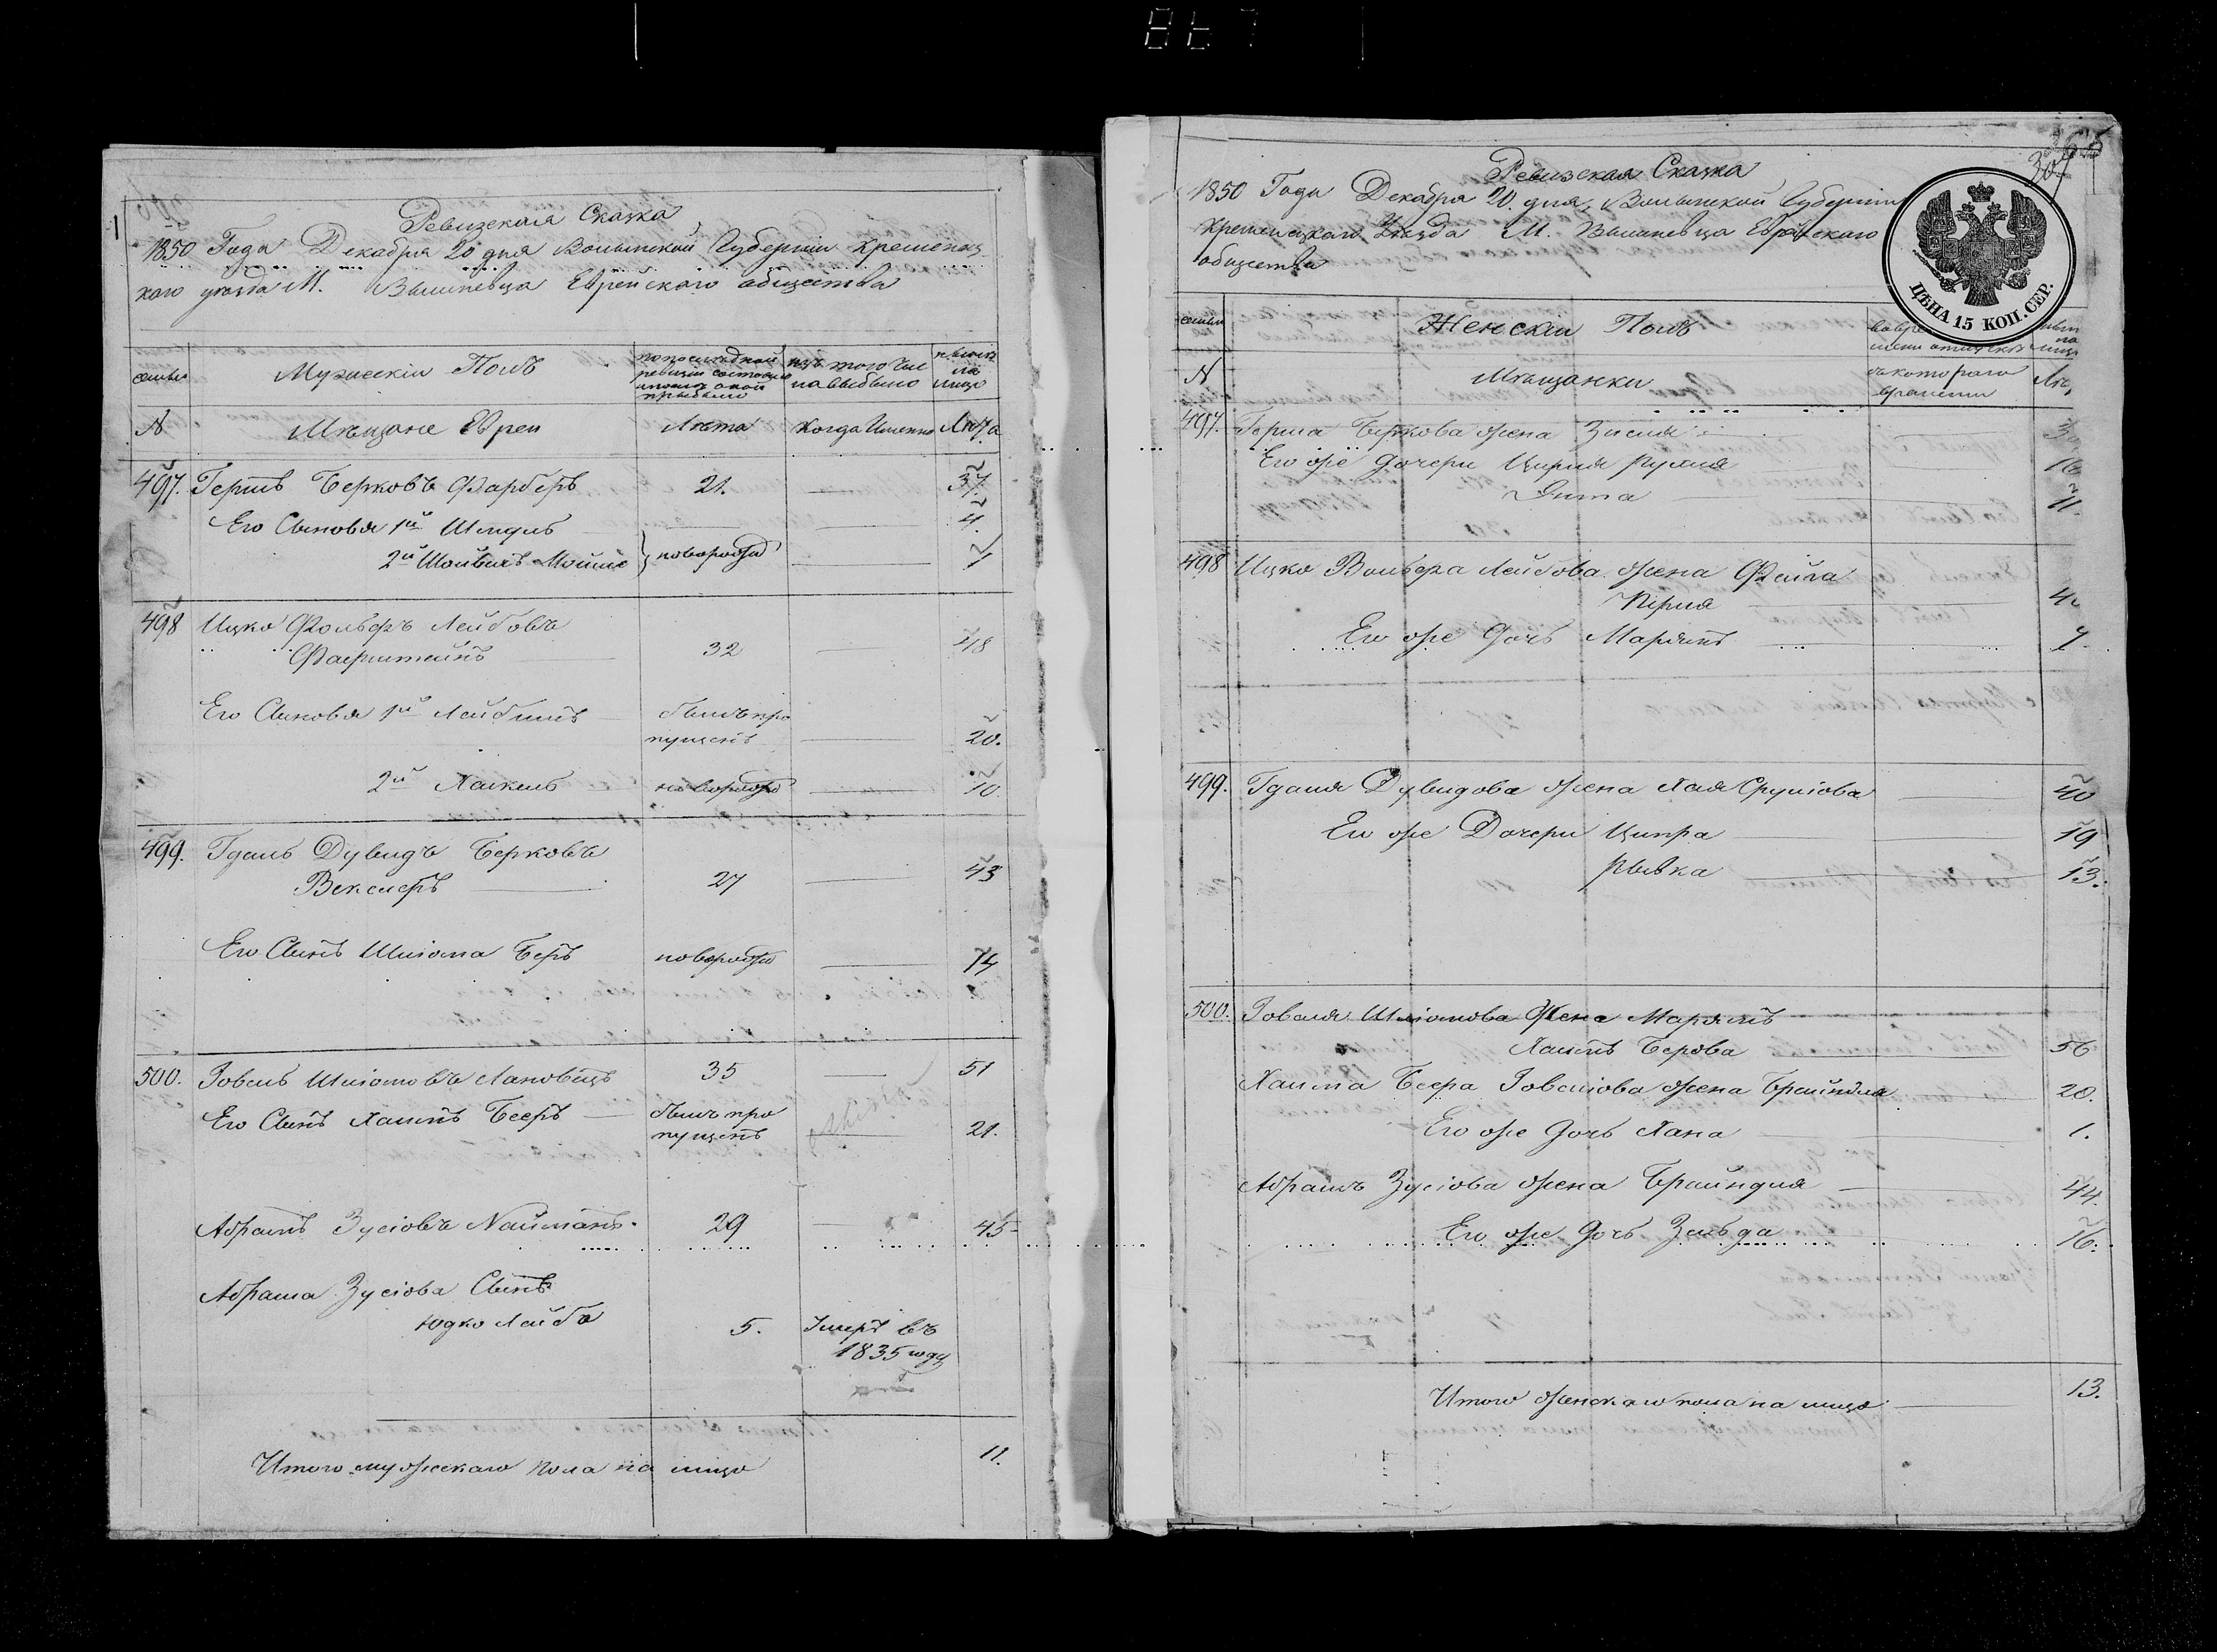 Ревизская Сказка
1850 Года Декабря 20 дня Волынской Губернiи Кременец
каго уезда М. Вишневца Еврейскаго общества
семьи
Мужескiй Полъ
по последней
ревизiи состояло
и после оной
прибыло
изъ того чис
ла выбыло
ныне
на
лицо
№
Мещане Евреи
Лета
Когда Именно
Лета
497. Гершъ Берковъ Фарберъ 21. 37.
Его Сыновья 1й Шмуль 4.
2й Шойвель Мошко новорожд 1
498 Ицко Вольфъ Лейбовъ
Файрштейнъ 32 48
Его Сыновья 1й Лейбишъ былъ про
пущенъ 20.
2й Хаскель новорожд 10
499. Гдаль Дувидъ Берковъ
Векслеръ 27 43
Его Сынъ Шлiома Беръ новорожд 14
500. Iовель Шлiомовъ Лановецъ 35 51
Его Сынъ Хаимъ Бееръ былъ про
пущенъ 21.
Абрамъ Зусiовъ Найманъ. 29 45
Абрама Зусiова Сынъ
Юдко Лейба 5. Умеръ въ
1835 году
Итого мужескаго пола на лицо 11.
307
Ревизская Сказка
1850 Года Декабря 20 дня Волынской Губернiи
Кременецкаго Уезда М. Вишневца Еврейскаго
общества
ЦѢНА 15 КОП. СЕР.
семьи
Женскiй Полъ
№
Мещанки
съ котораго
времени
497. Герша Беркова жена Зисля
Его же дочери Цирля Рухля 16
Гита 11.
498 Ицко Вольфа Лейбова жена Фейга
Перля
Его же Дочь Марьямъ 7.
499. Гдаля Дувидова жена Хая Срулiова 40
Его же Дочери Ципра 19
Рывка 13.
500. Iовеля Шлiомова Жена Марьямъ
Хаимъ Берова 56
Хаима Беера Iовелiова жена Брайндля 20.
Его же Дочь Хана 1.
Абрамъ Зусiова жена Брайндля 44.
Его же Дочь Зельда 16.
Итого женскаго пола на лицо 13.